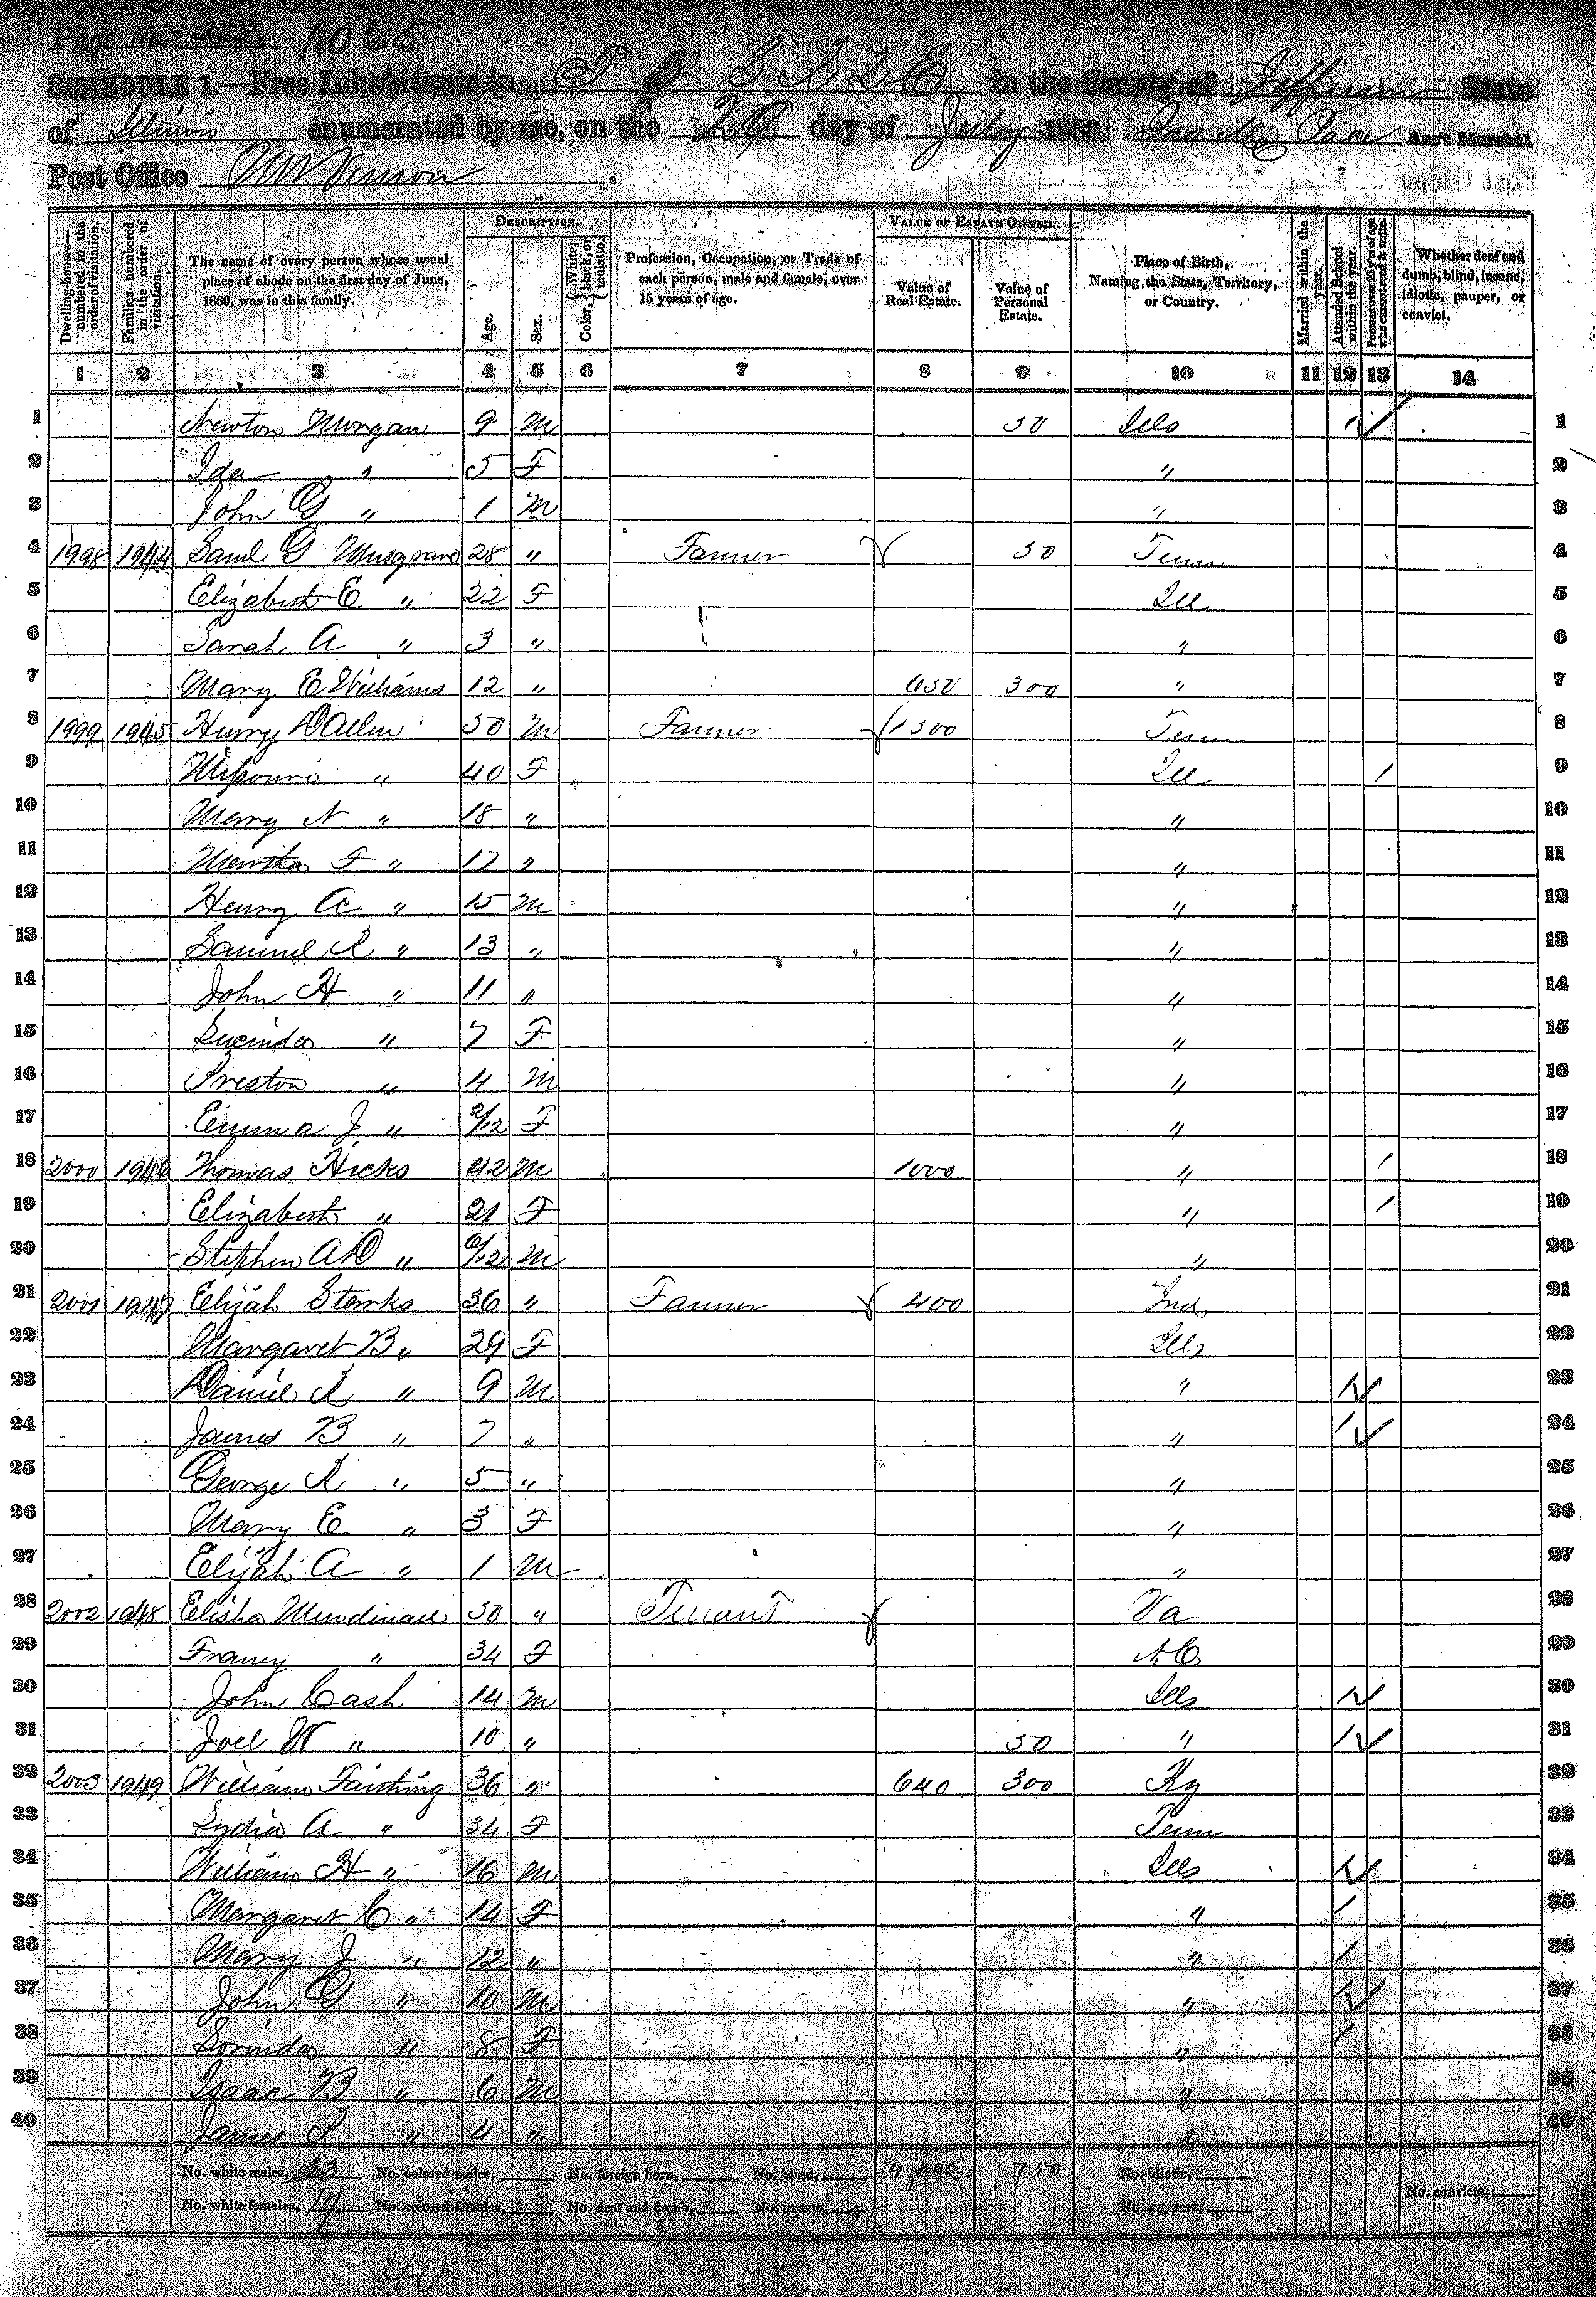 Page No. 1065
SCHEDULE 1.—Free Inhabitants in T S R 2 E in the County of Jefferson State
of Illinois enumerated by me, on the 29 day of July 1860. Pace Ass't Marshal.
Post Office Mt Vernon.
DESCRIPTION. VALUE OF ESTATE OWNED.
Dwelling-houses—numbered in the order of visitation. Families numbered in the order of visitation. The name of every person whose usual place of abode on the first day of June, 1860, was in this family. Age. Sex. Color, {White, black, or mulatto. Profession, Occupation, or Trade of each person, male and female, over 15 years of age. Value of Real Estate. Value of Personal Estate. Place of Birth, Naming the State, Territory, or Country. Married within the year. Attended School within the year. Persons over 20 y'rs of age who cannot read & write. Whether deaf and dumb, blind, insane, idiotic, pauper, or convict.
1 2 3 4 5 6 7 8 9 10 11 12 13 14
1 Newton Morgan 9 M 50 Ills 1 1
2 Ida " 5 F " 2
3 John G " 1 M " 3
4 1998 1944 Saml G Musgrave 28 " Farmer 50 Tenn 4
5 Elizabeth E " 22 F Ill 5
6 Sarah A " 3 " " 6
7 Mary E Williams 12 " 650 300 " 7
8 1999 1945 Henry D Allen 50 M Farmer 1500 Tenn 8
9 Missouri " 40 F Ill 1 9
10 Mary N " 18 " " 10
11 Martha F " 17 " " 11
12 Henry A " 15 M " 12
13 Samuel R " 13 " " 13
14 John H " 11 " " 14
15 Lucinda " 7 F " 15
16 Preston " 4 M " 16
17 Emma J " 2/12 F " 17
18 2000 1946 Thomas Hicks 42 M 1000 " 1 18
19 Elizabeth " 21 F " 1 19
20 Stephen A D " 6/12 M " 20
21 2001 1947 Elijah Starks 36 " Farmer 400 Ind 21
22 Margaret B " 29 F Ills 22
23 Daniel R " 9 M " 1 23
24 James B " 7 " " 1 24
25 George R " 5 " " 25
26 Mary E " 3 F " 26
27 Elijah A " 1 M " 27
28 2002 1948 Elisha Mendinall 50 " Tenant Va 28
29 Franey " 34 F N.C. 29
30 John Cash 14 M Ills 1 30
31 Joel W " 10 " 50 " 1 31
32 2003 1949 William Farthing 36 " 640 300 Ky 32
33 Lydia A " 34 F Tenn 33
34 William H " 16 M Ills 1 34
35 Margaret C " 14 F " 1 35
36 Mary J " 12 " " 1 36
37 John G " 10 M " 1 37
38 Lorinda " 8 F " 1 38
39 Isaac B " 6 M " 39
40 James " 4 " " 40
No. white males, 23 No. colored males, No. foreign born, No. blind, 4,190 750 No. idiotic,
No. white females, 17 No. colored females, No. deaf and dumb, No. insane, No. paupers, No. convicts,
40